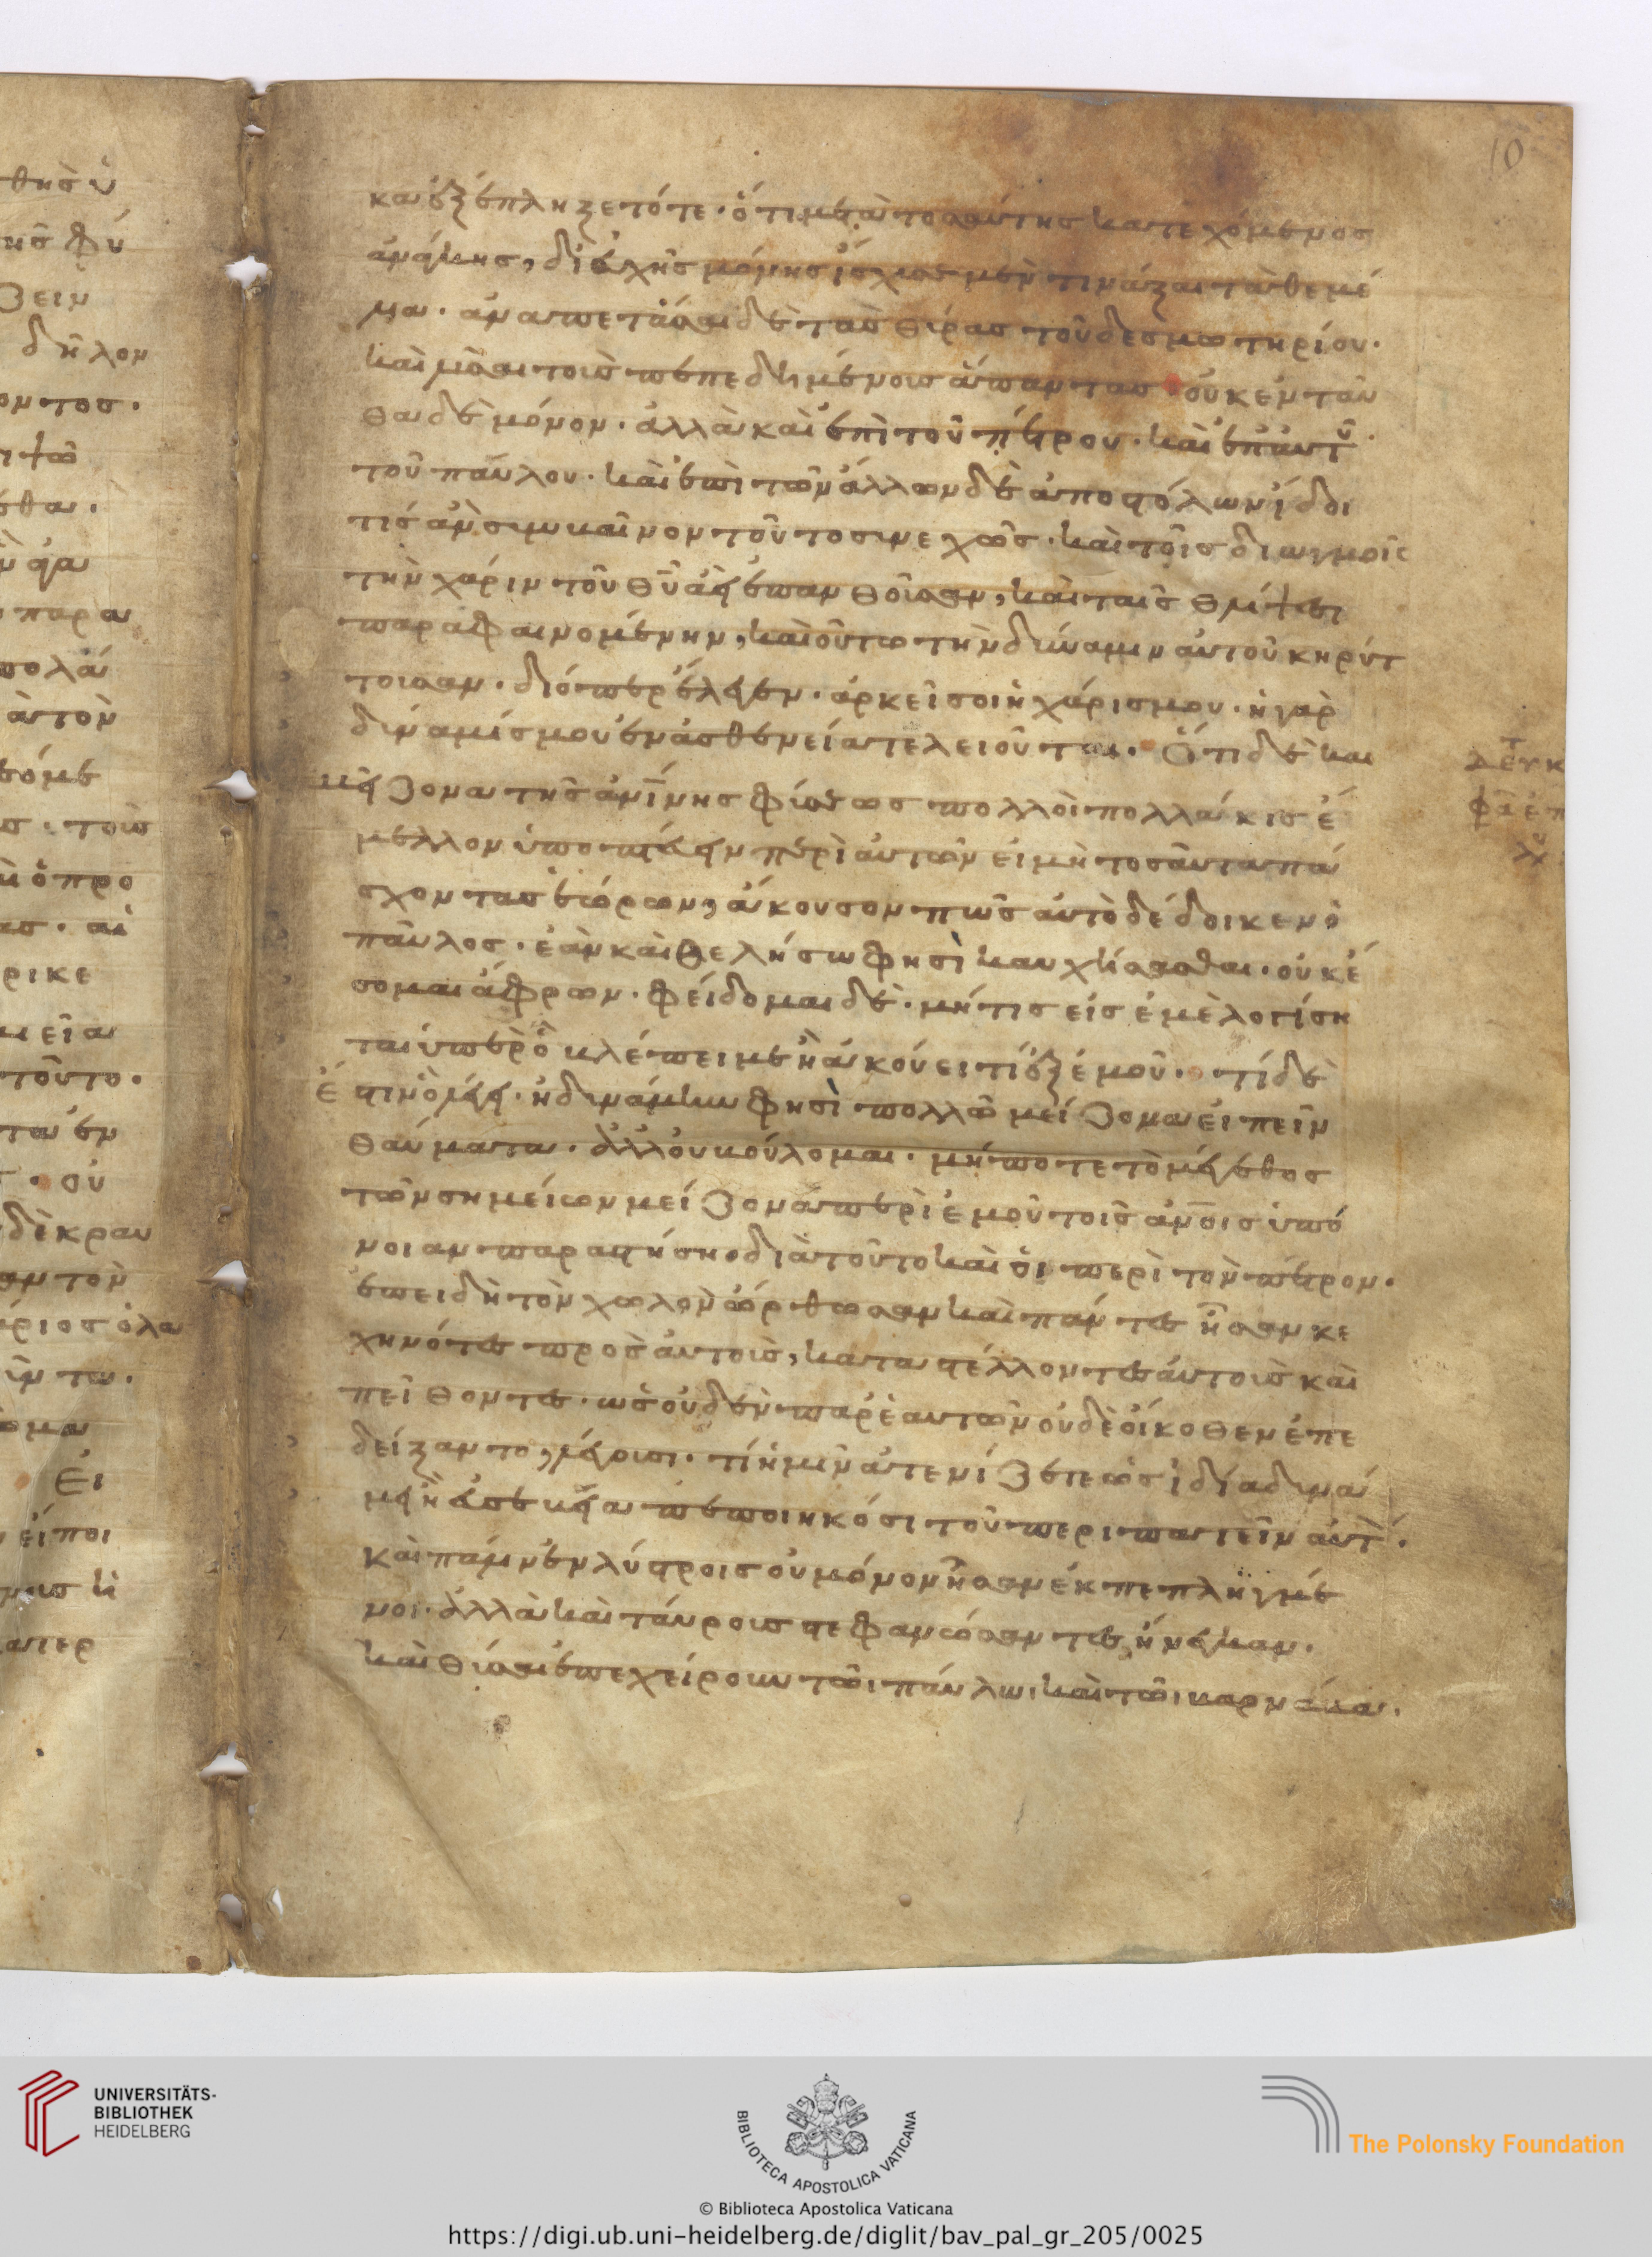 10
καὶ ἐξέπληξε τότε· ὅτι μετὰ τοσαύτης κατεχόμενος
ἀνάγκης, δι' εὐχῆς μόνης ἴσχυσεν τινάξαι τὰ θεμέ
λια· ἀναπετάσαι δὲ τὰς θύρας τοῦ δεσμωτηρίου·
καὶ λῦσαι τοὺς πεπεδημένους ἅπαντας οὐκ ἐνταῦ
θα δὲ μόνον· ἀλλὰ καὶ ἐπὶ τοῦ πέτρου· καὶ ἐπ' αὐτοῦ
τοῦ παύλου· καὶ ἐπὶ τῶν ἄλλων δὲ ἀποστόλων ἴδοι
τις ἂν συμβαῖνον τοῦτο συνεχῶς· καὶ τοῖς διωγμοῖς
τὴν χάριν τοῦ θῦ ἀεὶ ἐπανθοῦσαν, καὶ ταῖς θλίψεσι
παραφαινομένην, καὶ οὕτω τὴν δύναμιν αὐτοῦ κηρύτ
τουσαν· διόπερ ἔλεγεν· ἀρκεῖ σοι ἡ χάρις μου· ἡ γὰρ
δύναμίς μου ἐν ἀσθενείᾳ τελειοῦται· Ὅτι δὲ και
μείζονα τῆς ἀνῖνης φύσεως πολλοὶ πολλάκις ἔ
μελλον ὑποπτεύειν περὶ αὐτῶν εἰ μὴ τοσαῦτα πά
σχοντας ἑώρων, ἄκουσον πῶς αὐτὸ δέδοικεν ὁ
παῦλος· ἐὰν καὶ θελήσω φησὶ καυχήσασθαι· οὐκ ἔ
σομαι ἄφρων· φείδομαι δὲ· μή τις εἰς ἐμὲ λογίση
ται ὑπὲρ ὃ βλέπει με ἢ ἀκούει τι ἐξ ἐμοῦ· τί δὲ
ἐστιν ὃ λέγει· ἠδυνάμην φησὶ πολλῶ μείζονα εἰπεῖν
θαύματα· ἀλλ' οὐ βούλομαι· μήποτε τὸ μέγεθος
τῶν σημείων μείζονα περὶ ἐμοῦ τοῖς ἀνοις ὑπό
νοιαν παραστήση· διὰ τοῦτο καὶ οἱ περὶ τὸν πέτρον·
ἐπειδὴ τὸν χωλὸν ὤρθωσαν καὶ πάντες ἦσαν κε
χηνότες πρὸς αὐτοὺς, καταστέλλοντες αὐτοὺς καὶ
πείθοντες· ὡς οὐδὲν παρ' ἑαυτῶν οὐδὲ οἴκοθεν ἐπε
δείξαντο, λέγουσι· τί ἡμῖν ἀτενίζετε ὡς ἰδία δυνά
μει ἢ εὐσεβεία πεποιηκόσι τοῦ περιπατεῖν αὐτὸν·
καὶ πάλιν ἐν λύστροις οὐ μόνον ἦσαν ἐκπεπληγμέ
νοι· ἀλλὰ καὶ ταύρους στεφανώσαντες ἤνεγκαν·
καὶ θῦσαι ἐπεχείρουν τῶι παύλω· καὶ τῶι βαρνάβα·
UNIVERSITÄTS-
BIBLIOTHEK
HEIDELBERG
BIBLIOTECA APOSTOLICA VATICANA
The Polonsky Foundation
© Biblioteca Apostolica Vaticana
https://digi.ub.uni-heidelberg.de/diglit/bav_pal_gr_205/0025